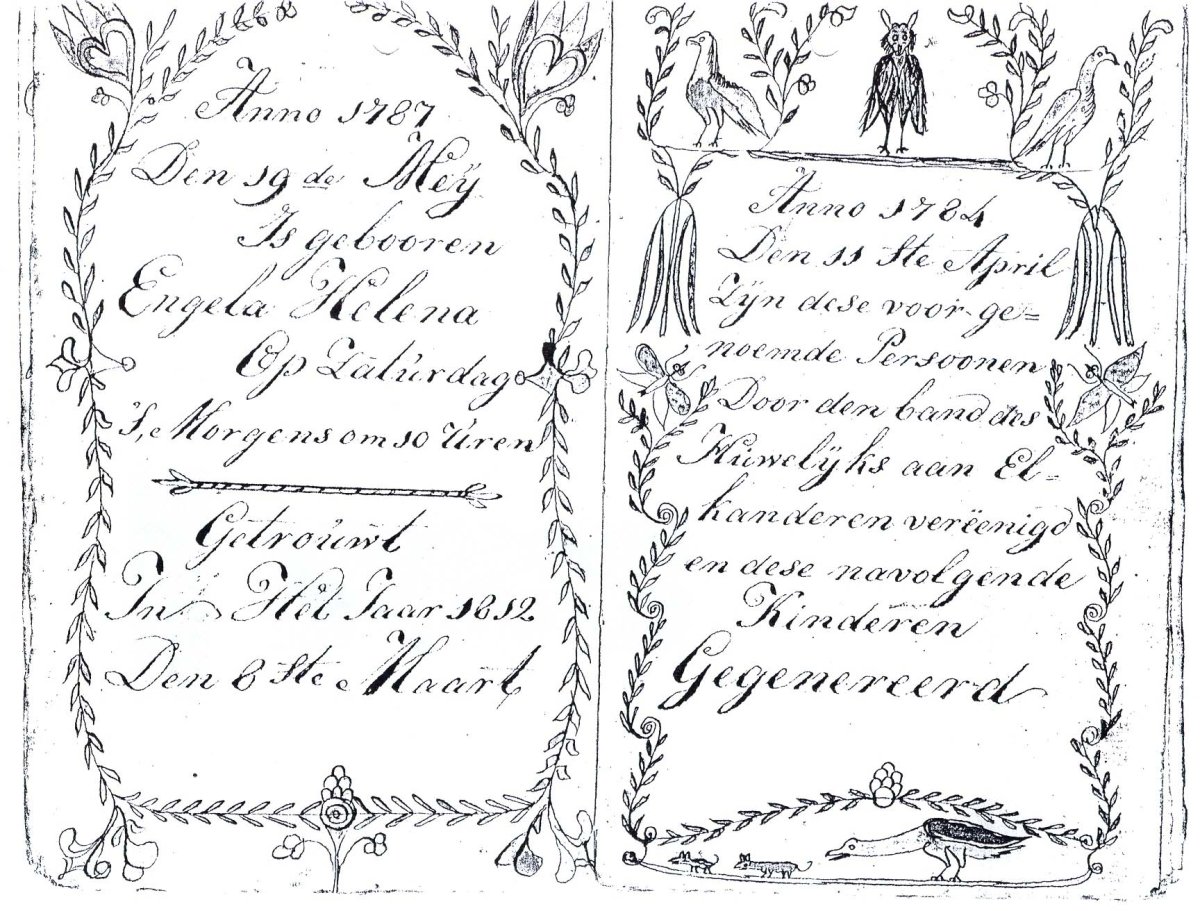 Anno 1787
Den 19 de Meÿ
Is gebooren
Engela Helena
Op Zaturdag
's, Morgens om 10 Uren
Getrouwt
In Het Jaar 1812
Den 8 ste Maart
Anno 1784
Den 11 Ste April
Zÿn dese voor ge=
noemde Persoonen
Door den band des
Huwelÿks aan El-
kanderen vereenigd
en dese navolgende
Kinderen
Gegenereerd